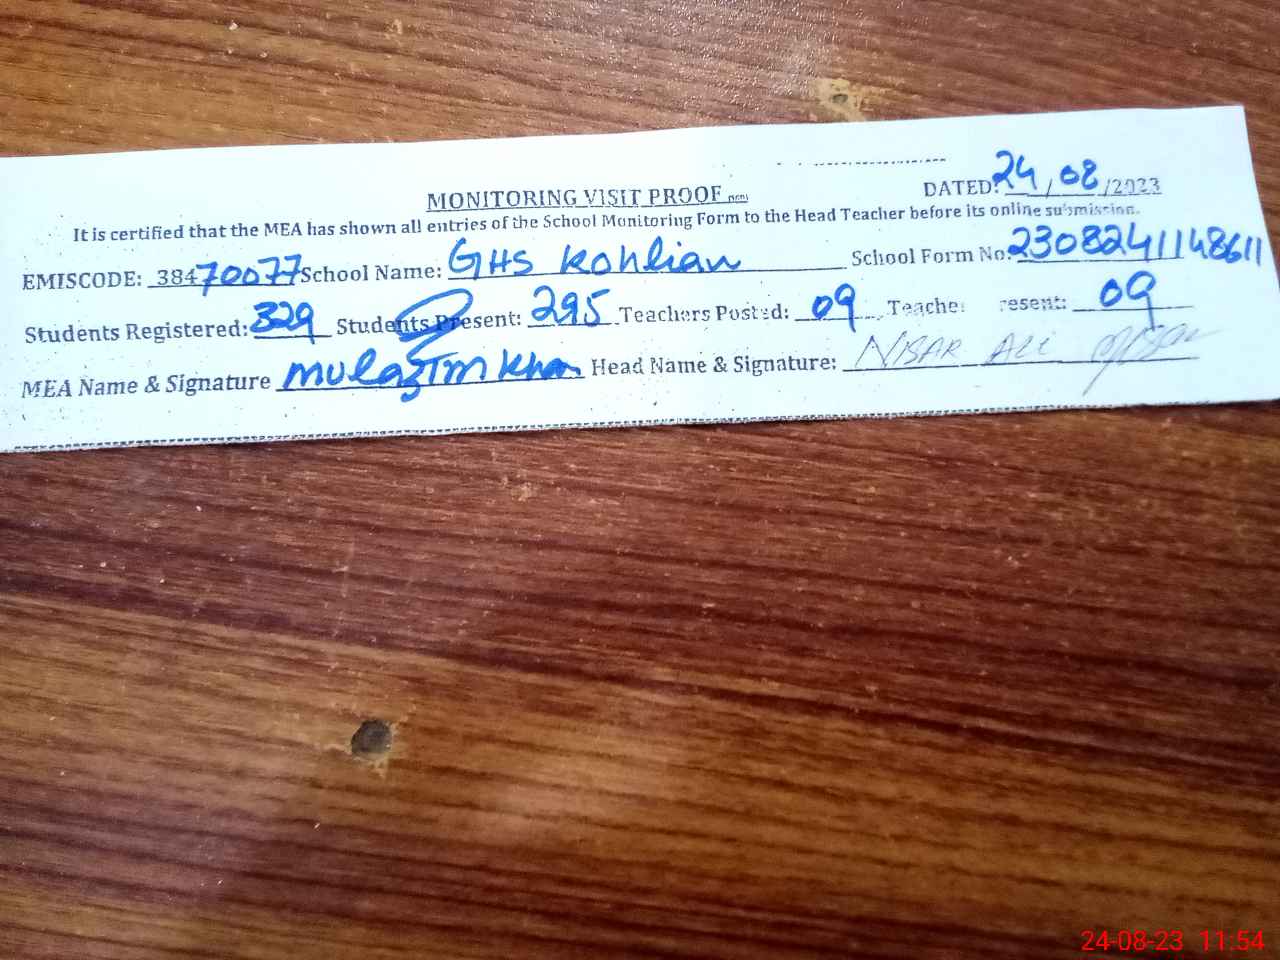 DATED: 24/08/2023
MONITORING VISIT PROOF
It is certified that the MEA has shown all entries of the School Monitoring Form to the Head Teacher before its online submission.
EMISCODE: 38470077 School Name: GHS Kohlian School Form No: 2308241148611
Students Registered: 329 Students Present: 295 Teachers Posted: 09 Teacher resent: 09
MEA Name & Signature Mulazim Khan Head Name & Signature: NISAR ALI
24-08-23 11:54